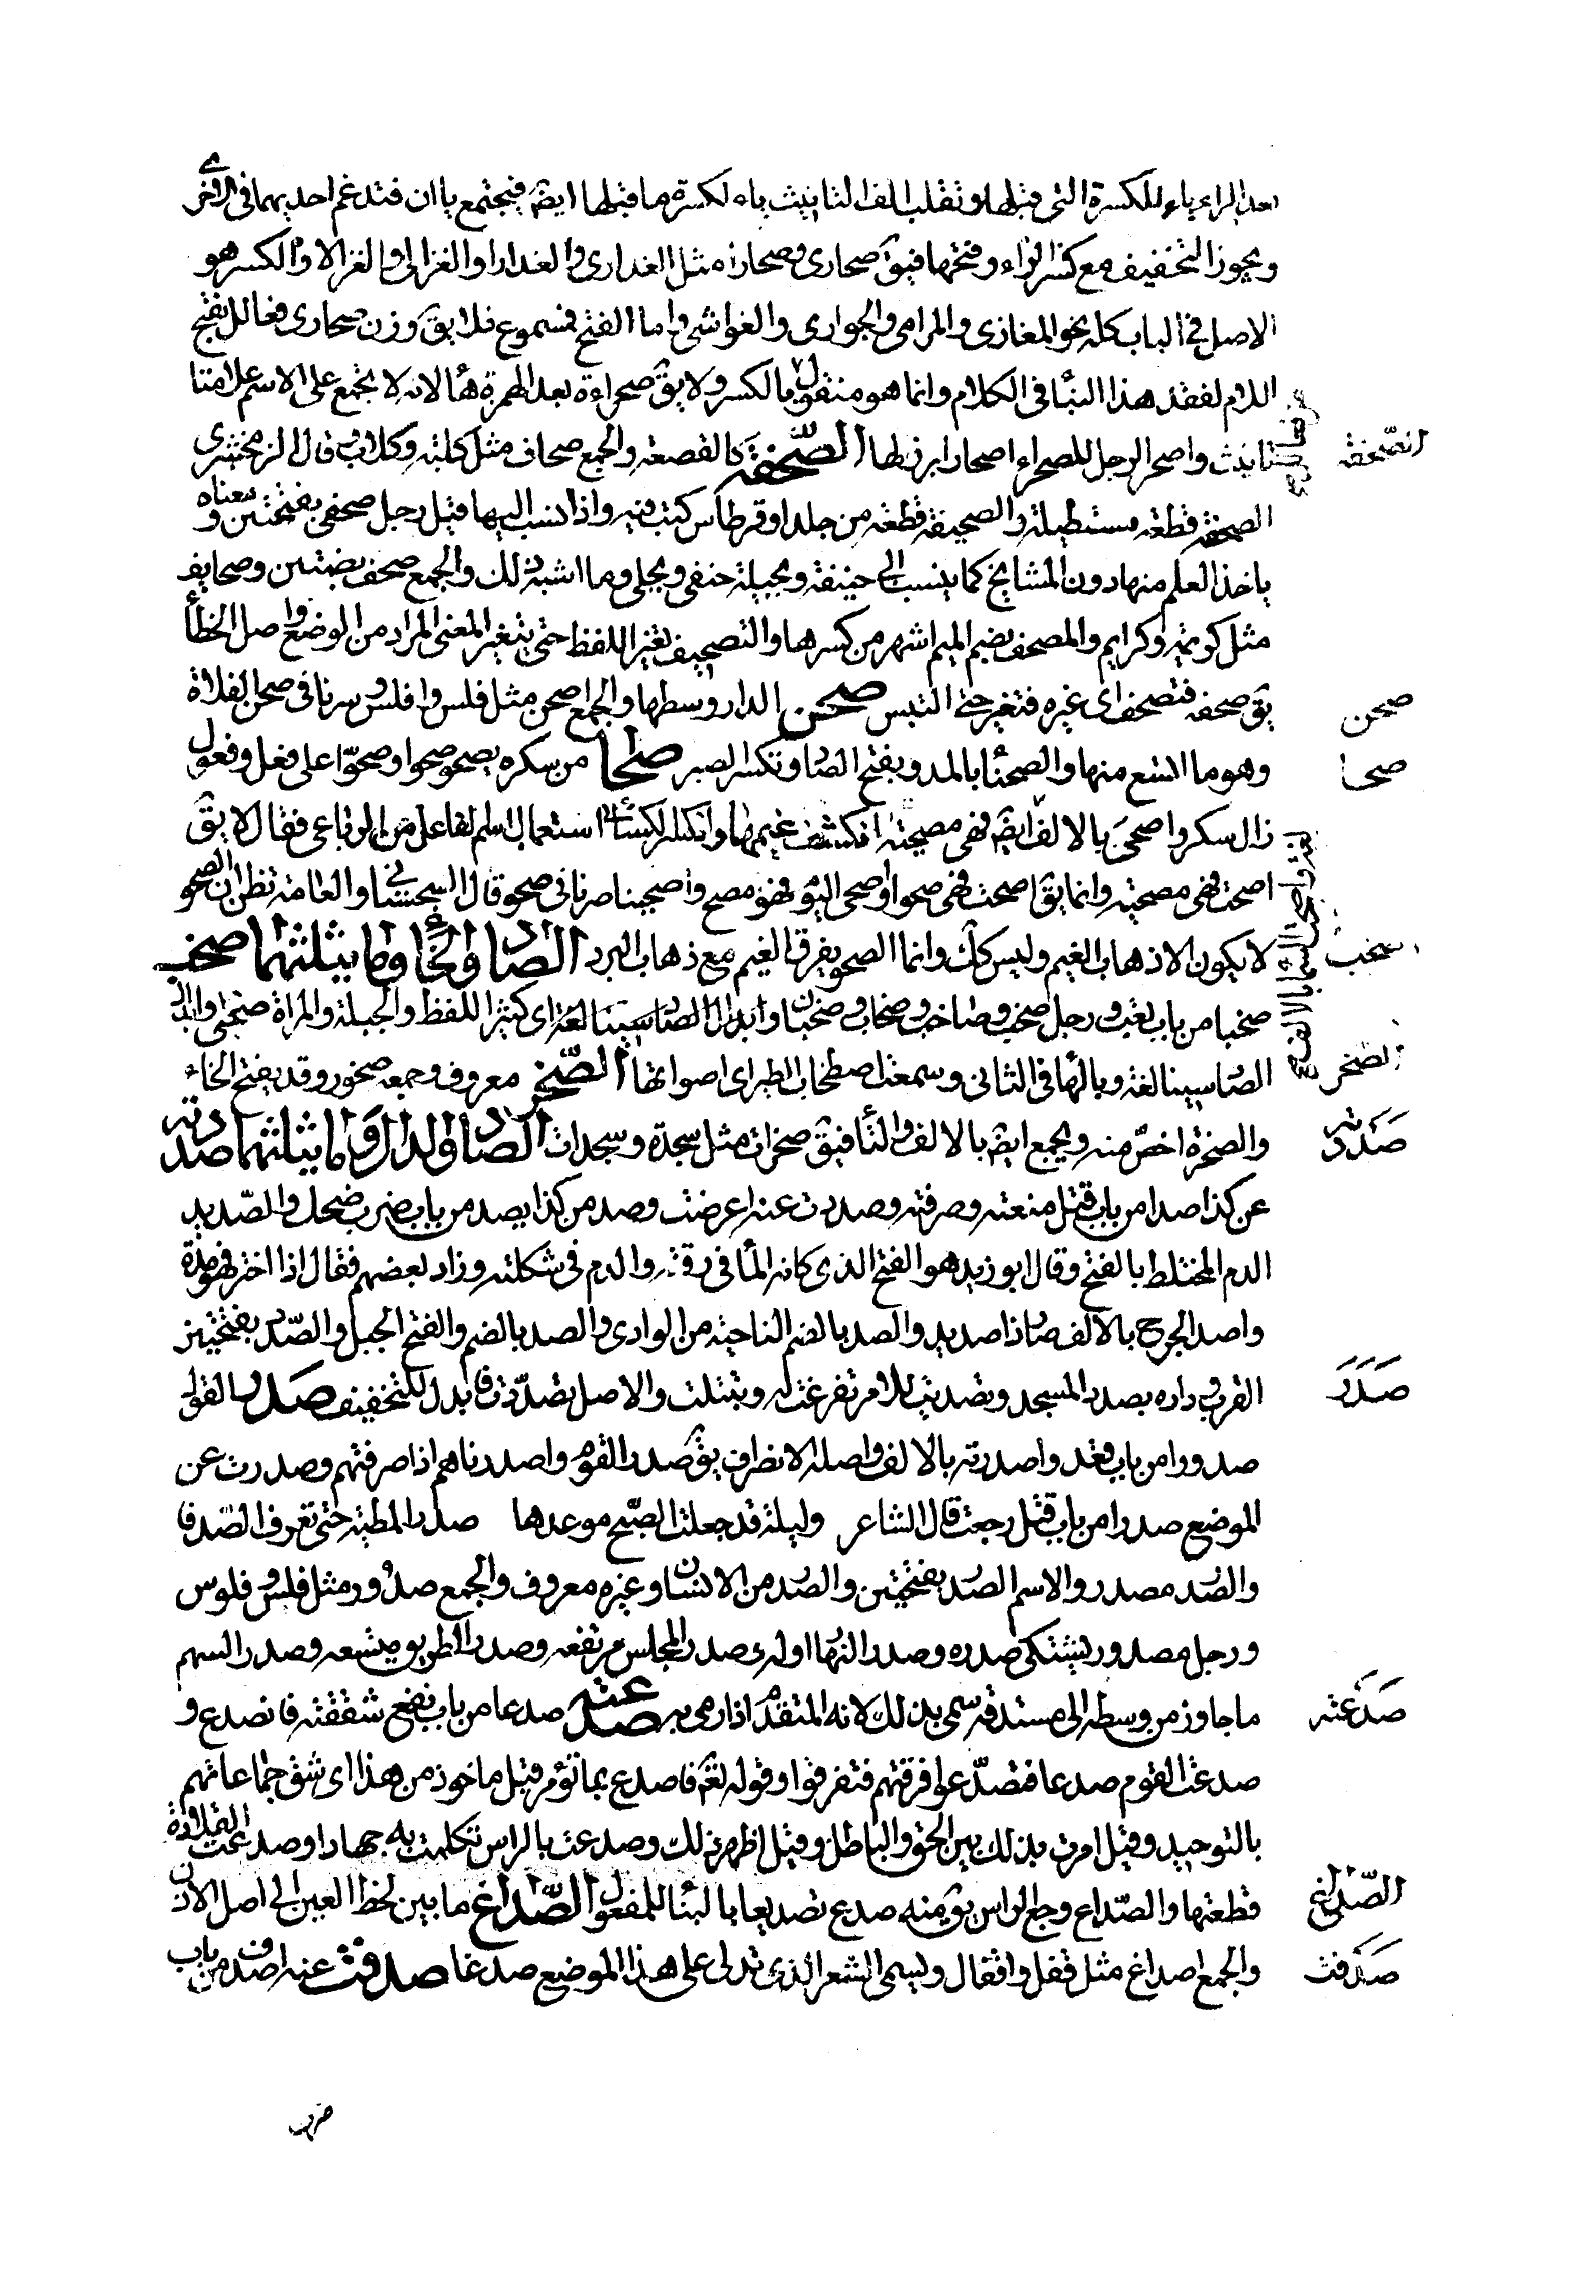 بعد الراء ياء للكسرة التي قبلها وتقلب الف التانيث ياء لكسرة ما قبلها ايضا فيجتمع ياان فتدغم احديهما في الاخرى
ويجوز التخفيف مع كسر الراء وفتحها فيق صحارى وصحارا مثل العذارى والعذارا والغزالى والغزالا والكسر هو
الاصل في الباب كله نحو المغازى والمرامى والجوارى والغواشى واما الفتح فمسموع فلا يق وزن صحارى فعالل بفتح
اللام لفقد هذا البنا في الكلام وانما هو منقول بالكسر ولا يق صحراءة بعد الهمزة هأ لانه لا يجمع على الاسم علامتا
تانيث واصحر الرجل للصحراء اصحارا برز لها الصّحفة كالقصعة والجمع صحاف مثل كلبة وكلاب وقال الزمخشرى
الصحفة قطعة مستطيلة والصحيفة قطعة من جلد او قرطاس كتب فيه واذا نسب اليها قيل رجل صحفى بفتحتين ومعناه
ياخذ العلم منها دون المشايخ كما ينسب الى حنيفة وبجيلة حنفى وبجلى وما اشبه ذلك والجمع صحف بضمتين وصحايف
مثل كريمة وكرايم والمصحف بضم الميم اشهر من كسرها والتصحيف تغير اللفظ حتى يتغير المعنى المراد من الوضع واصل الخطأ
يق صحفه فتصحف اى غيره فتغير حتى التبس صحن الدار وسطها والجمع اصحن مثل فلس وافلس وسرنا في صحن الفلاة
وهو ما اتسع منها والصحنا بالمد وبفتح الصاد وتكسر الصير صحا من سكره يصحو صحوا وصحوّا على فعل وفعول
زال سكره واصحى بالالف ايضا فهى مصحية انكشف غيمها وانكر الكسائى استعمال اسم لفاعل من الرباعى فقال لا يق
اصحت فهى مصحية وانما يق اصحت فهى صحو واصحى اليوم فهو مصح واصحينا صرنا في صحو قال السجستانى والعامة تظن ان الصحو
لا يكون الا ذهاب الغيم وليس كك وانما الصحو تفرق الغيم مع ذهاب البرد الصاد والخا وما يثلثهما صخب
صخبا من باب تعب ورجل صخب وصاخب وصخاب وصخبان وابدال الصاد سينا لغة اى كثير اللفظ والجبلة والمراة صخبى وابدال
الصاد سينا لغة وبالهأ في الثانى وسمعت اصطخاب الطير اى اصواتها الصّخر معروف وجمعه صخور وقد يفتح الخاء
والصخرة اخصّ منه ويجمع ايضا بالالف والتأ فيق صخرات مثل سجدة وسجدات الصاد والدال وما يثلثهما صددته
عن كذا صدا من باب قتل منعته وصرفته وصددت عنه اعرضت وصد من كذا يصد من باب ضرب ضحك والصّديد
الدم المختلط بالفتح وقال ابو زيد هو الفتح الذى كانه المأ في رقته والدم في شكلته وزاد بعضهم فقال اذا اخثر فهو مدة
واصد الجرح بالالف صار ذا صديد والصد بالضم الناحية من الوادى والصد بالضم والفتح الجبل والصّدد بفتحتين
القرب وداره بصدد المسجد وتصديت للامر تفرغت له وتبتلت والاصل تصدّدت فابدل للتخفيف صدر القول
صدورا من باب قعد واصدرته بالالف واصله الانصراف يق صدر القوم واصدرناهم اذا صرفتهم وصدرت عن
الموضع صدرا من باب قتل رجعت قال الشاعر وليلة قد جعلت الصّبح موعدها صدر المطية حتى تعرف السّدفا
والصدر مصدر والاسم الصدر بفتحتين والصدر من الانسان وغيره معروف والجمع صدور مثل فلس وفلوس
ورجل مصدور يشتكى صدره وصدر النهار اوله وصدر المجلس مرتفعه وصدر الطريق متسعه وصدر السهم
ما جاوز من وسطه الى مستدقه سمى بذلك لانه المتقدم اذا رمى به صدعته صدعا من باب نفع شققته فانصدع و
صدعت القوم صدعا فتصدّعوا فرقتهم فتفرقوا وقوله تعم فاصدع بما تؤمر قيل ماخوذ من هذا اى شق جماعاتهم
بالتوحيد وقيل افرق بذلك بين الحق والباطل وقيل اظهر ذلك وصدعت بالراس تكلمت به جهارا وصدعت الفلاة
قطعتها والصّداع وجع الراس يق منه صدع تصديعا بالبنأ للمفعول الصّداغ ما بين لحظ العين الى اصل الاذن
والجمع اصداغ مثل قفل واقفال ويسمى الشعر الذى تدلى على هذا الموضع صدغا صدفت عنه اصدف من باب
ضرب
الصّحفة
صحن
صحا
صخب
الصخر
صددته
صدر
صدعته
الصّداغ
صدفت